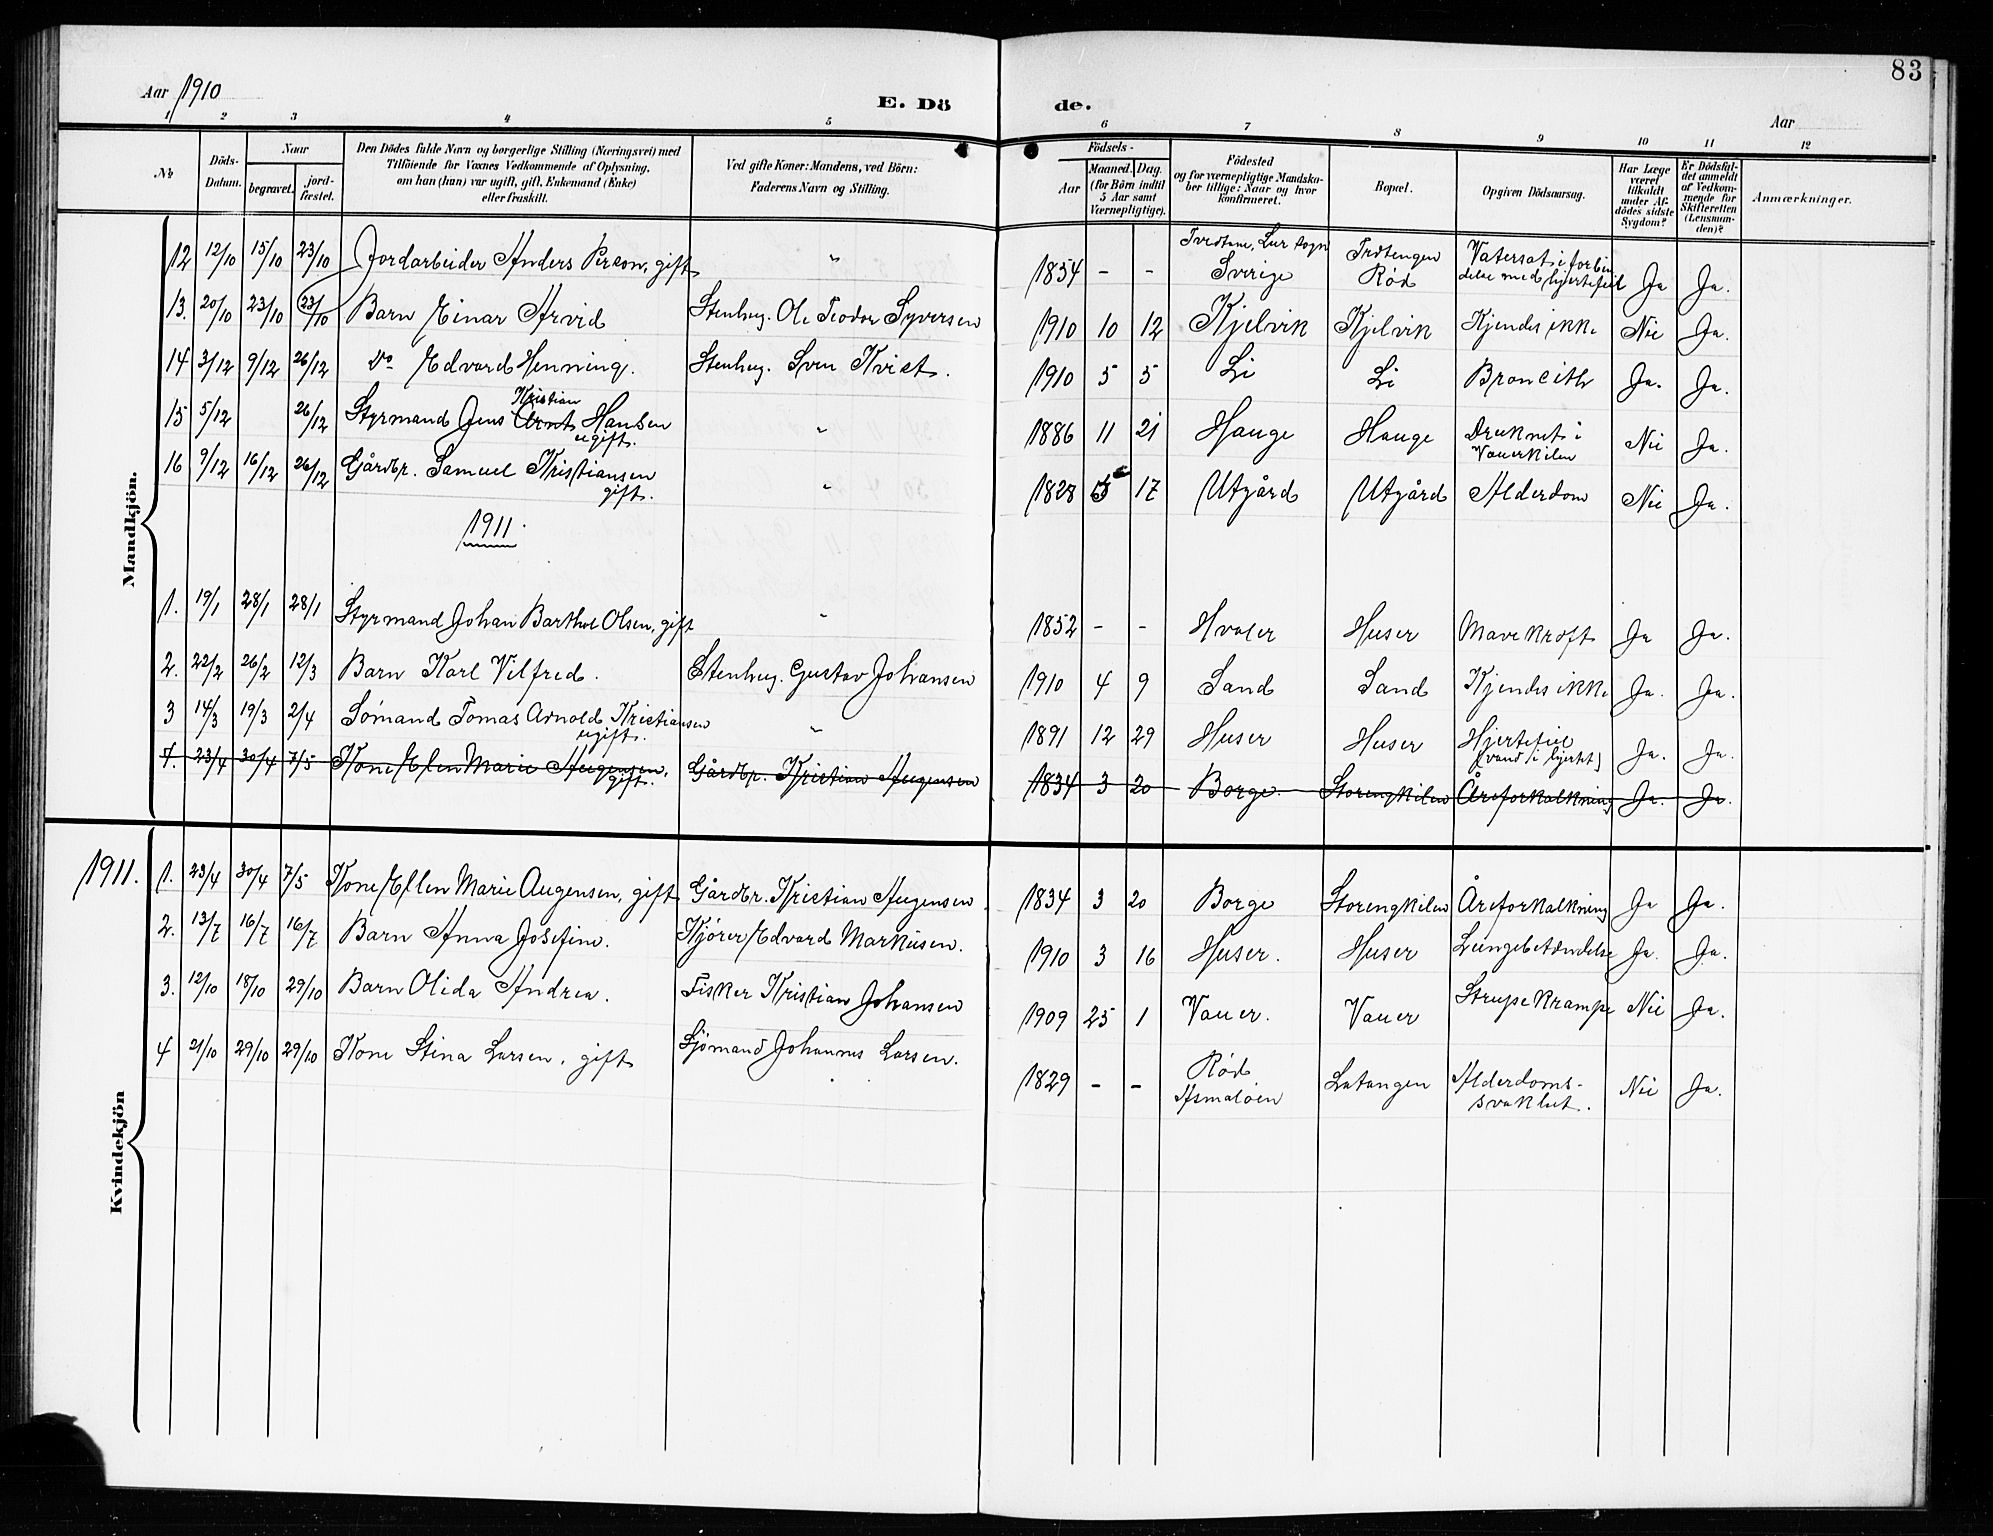 83
Aar 1910
E. Dö
de.
Aar
1 2 3 4 5 6 7 8 9 10 11 12
№
Döds-Datum.
Naar
begravet.
jord-fæstet.
Den Dödes fulde Navn og borgerlige Stilling (Næringsvei) med
Tilföiende for Voxnes Vedkommende af Oplysning,
om han (hun) var ugift, gift, Enkemand (Enke)
eller fraskilt.
Ved gifte Koner: Mandens, ved Börn:
Faderens Navn og Stilling.
Födsels-
Aar
Maaned. Dag.
(for Börn indtil
5 Aar samt
Værnepligtige).
Födested
og for værnepligtige Mandska-
ber tillige: Naar og hvor
konfirmeret.
Bopæl.
Opgiven Dödsaarsag.
Har Læge
været
tilkaldt
under Af-
dödes sidste
Sygdom?
Er Dödsfal-
det anmeldt
af Vedkom-
mende for
Skifteretten
(Lensman-
den)?
Anmærkninger.
Mandkjön.
12 12/10 15/10 23/10 Jordarbeider Anders Person, gift " 1854 - - Tvedtane, Lur sogn Sverige Rød Vatersot i forbin delse med hjertefeil Ja Ja.
13. 20/10 23/10 23/10 Barn Einar Arvid Stenhug. Ole Teodor Syversen 1910 10 12 Kjelvik Kjelvik Kjendes ikke Nei Ja.
14 3/12 9/12 26/12 Do Edvard Henning. Stenhug. Sven Kvist. 1910 5 5 Li Li Broncith Ja. Ja.
15 5/12 26/12 Styrmand Jens Arnt Kristian Hansen ugift. " 1886 11 21 Hauge Hauge Druknet i Vauerkilen Nei Ja.
16 9/12 16/12 26/12 Gårdbr. Samuel Kristiansen gift. " 1828 5 17 Utgård Utgård Alderdom Nei Ja.
1911.
1. 19/1 28/1 28/1 Styrmand Johan Barthol Olsen, gift " 1852 - - Hvaler Huser Mavekræft Ja Ja.
2. 22/2 26/2 12/3 Barn Karl Vilfred. Stenhug. Gustav Johansen 1910 4 9 Sand Sand Kjendes ikke Ja. Ja.
3 14/3 19/3 2/4 Sømand Tomas Arnold Kristiansen ugift. " 1891 12 29 Huser Huser Hjertefeil (vand i hjertet) Ja. Ja.
4. 23/4 30/4 7/5 Kone Ellen Marie Augensen, gift. Gårdbr. Kristian Augensen 1834 3 20 Borge Storengkilen Åreforkalkning Ja. Ja.
Kvindekjön
1911.
1. 23/4 30/4 7/5 Kone Ellen Marie Augensen, gift Gårdbr. Kristian Augensen 1834 3 20 Borge Storengkilen Åreforkalkning Ja Ja.
2. 13/7 16/7 16/7 Barn Anna Josefine. Kjører Edvard Markusen. 1910 3 16 Huser. Huser Lungebetændelse Ja. Ja.
3. 12/10 18/10 29/10 Barn Olida Andrea. Fisker Kristian Johansen 1909 25 1 Vauer. Vauer Strupekrampe Nei Ja.
4 21/10 29/10 29/10 Kone Stina Larsen, gift Sjømand Johannes Larsen. 1829 - - Rød Asmaløen Latangen Alderdoms-svakhet. Nei Ja.